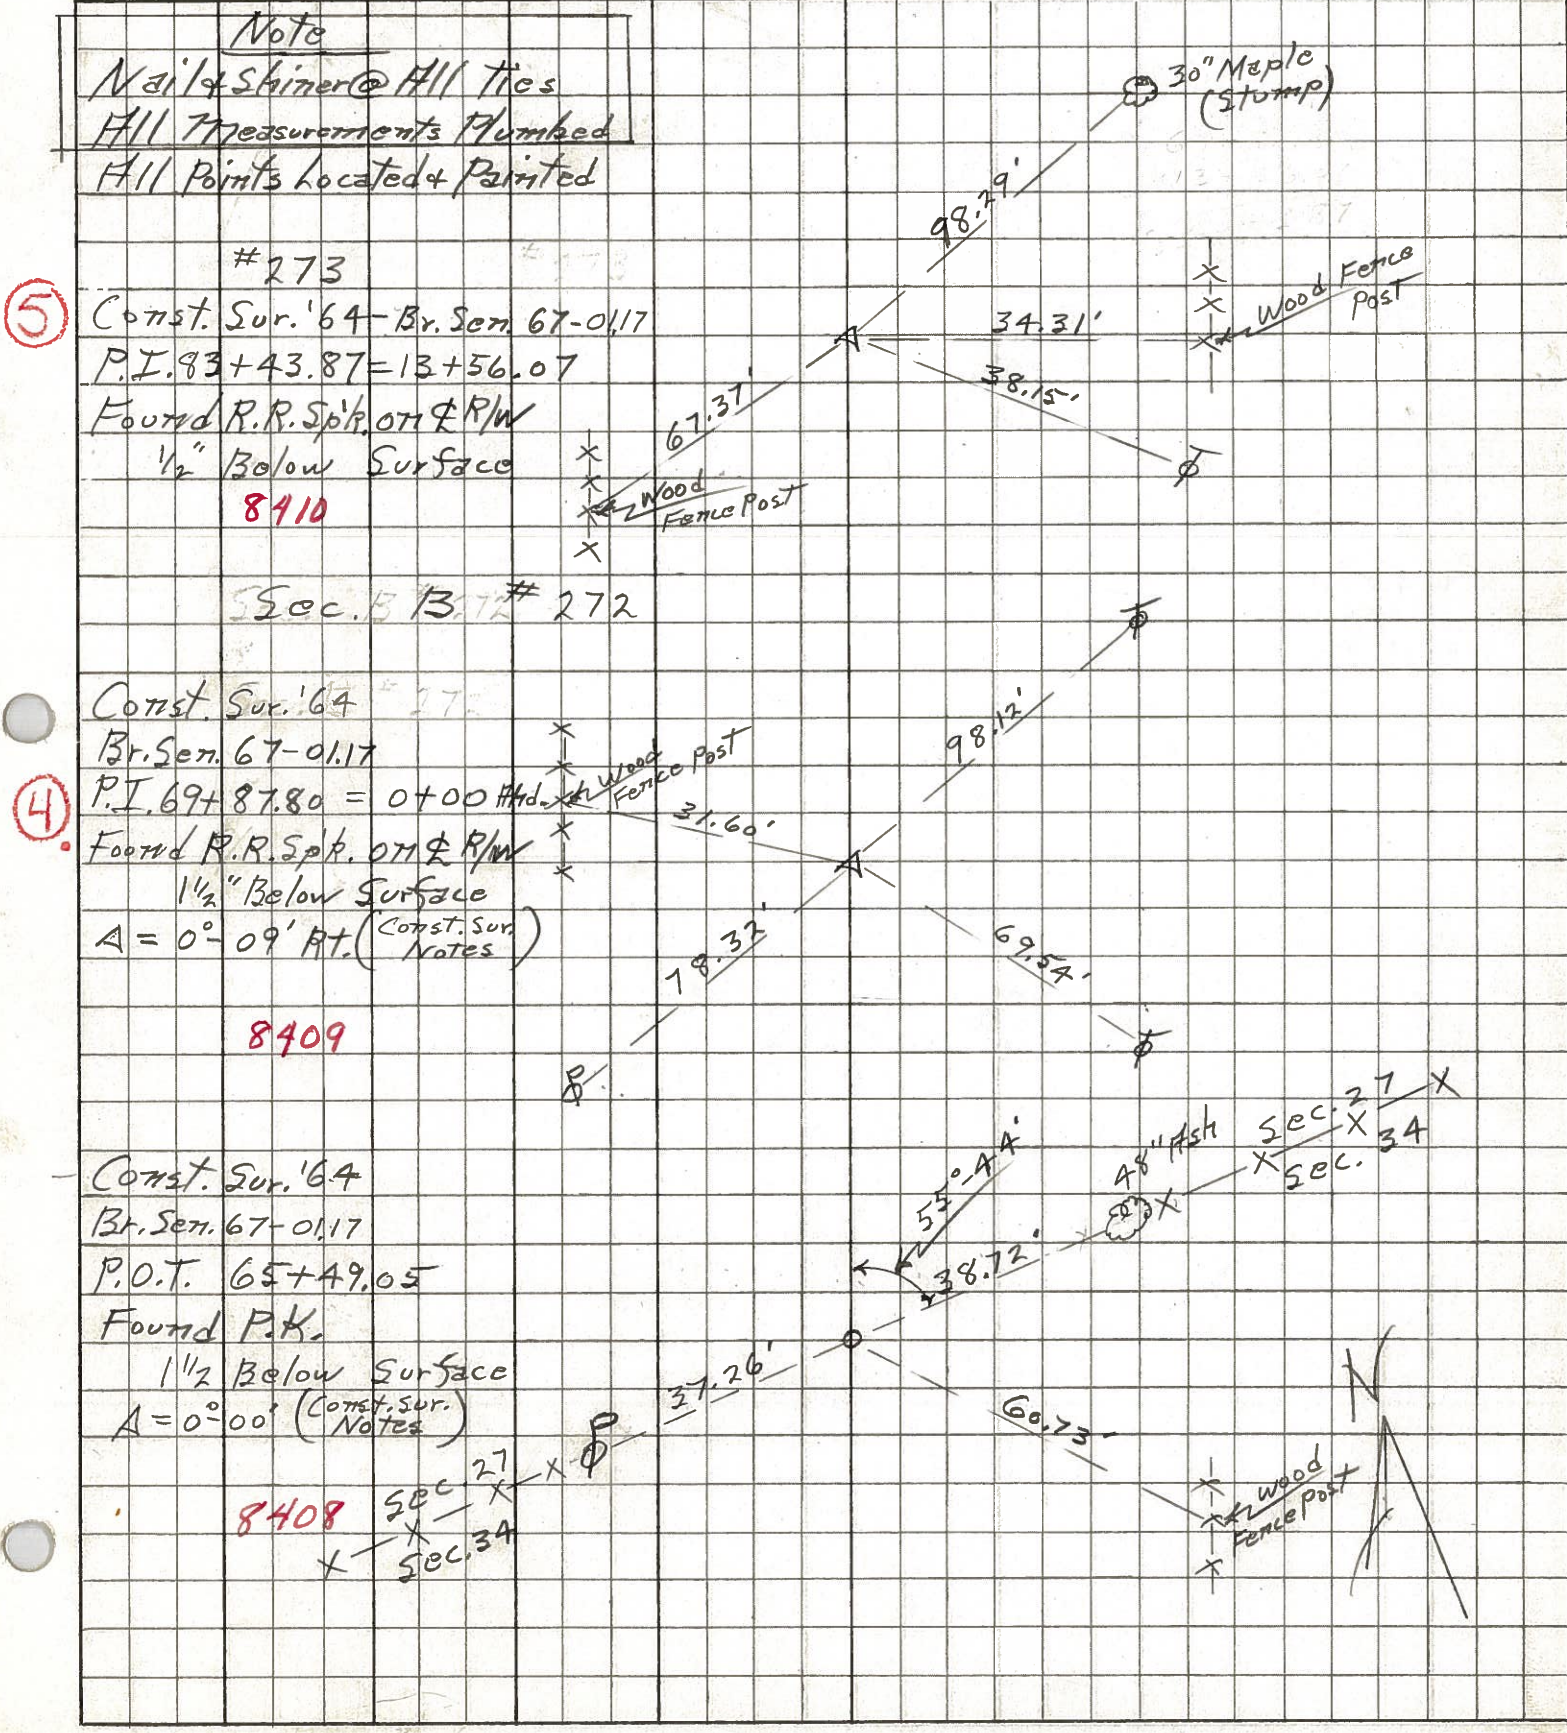 Note
Nail & Shiner @ All Ties
All Measurements Plumbed
All Points Located & Painted
30" Maple
(Stump)
98.29'
#273
5
Const. Sur. '64 - Br. Sen. 67-01.17
P.I. 83+43.87 = 13+56.07
Found R.R. Spk. on ℄ R/W
1/2" Below Surface
8410
34.31'
Wood Fence
Post
38.15'
67.37'
Wood
Fence Post
Sec. 13 #272
Const. Sur. '64
Br. Sen. 67-01.17
4
P.I. 69+87.80 = 0+00 Ahd.
Found R.R. Spk. on ℄ R/W
1 1/2" Below Surface
Δ = 0°-09' Rt. (Const. Sur.
Notes)
8409
Wood
Fence Post
31.60'
98.12'
78.32'
69.54'
Const. Sur. '64
Br. Sen. 67-01.17
P.O.T. 65+49.05
Found P.K.
1 1/2 Below Surface
Δ = 0°-00' (Const. Sur.
Notes)
8408
Sec. 27
Sec. 34
55°-44'
48" Ash
Sec. 27
Sec. 34
38.72'
37.26'
60.73'
Wood
Fence Post
N